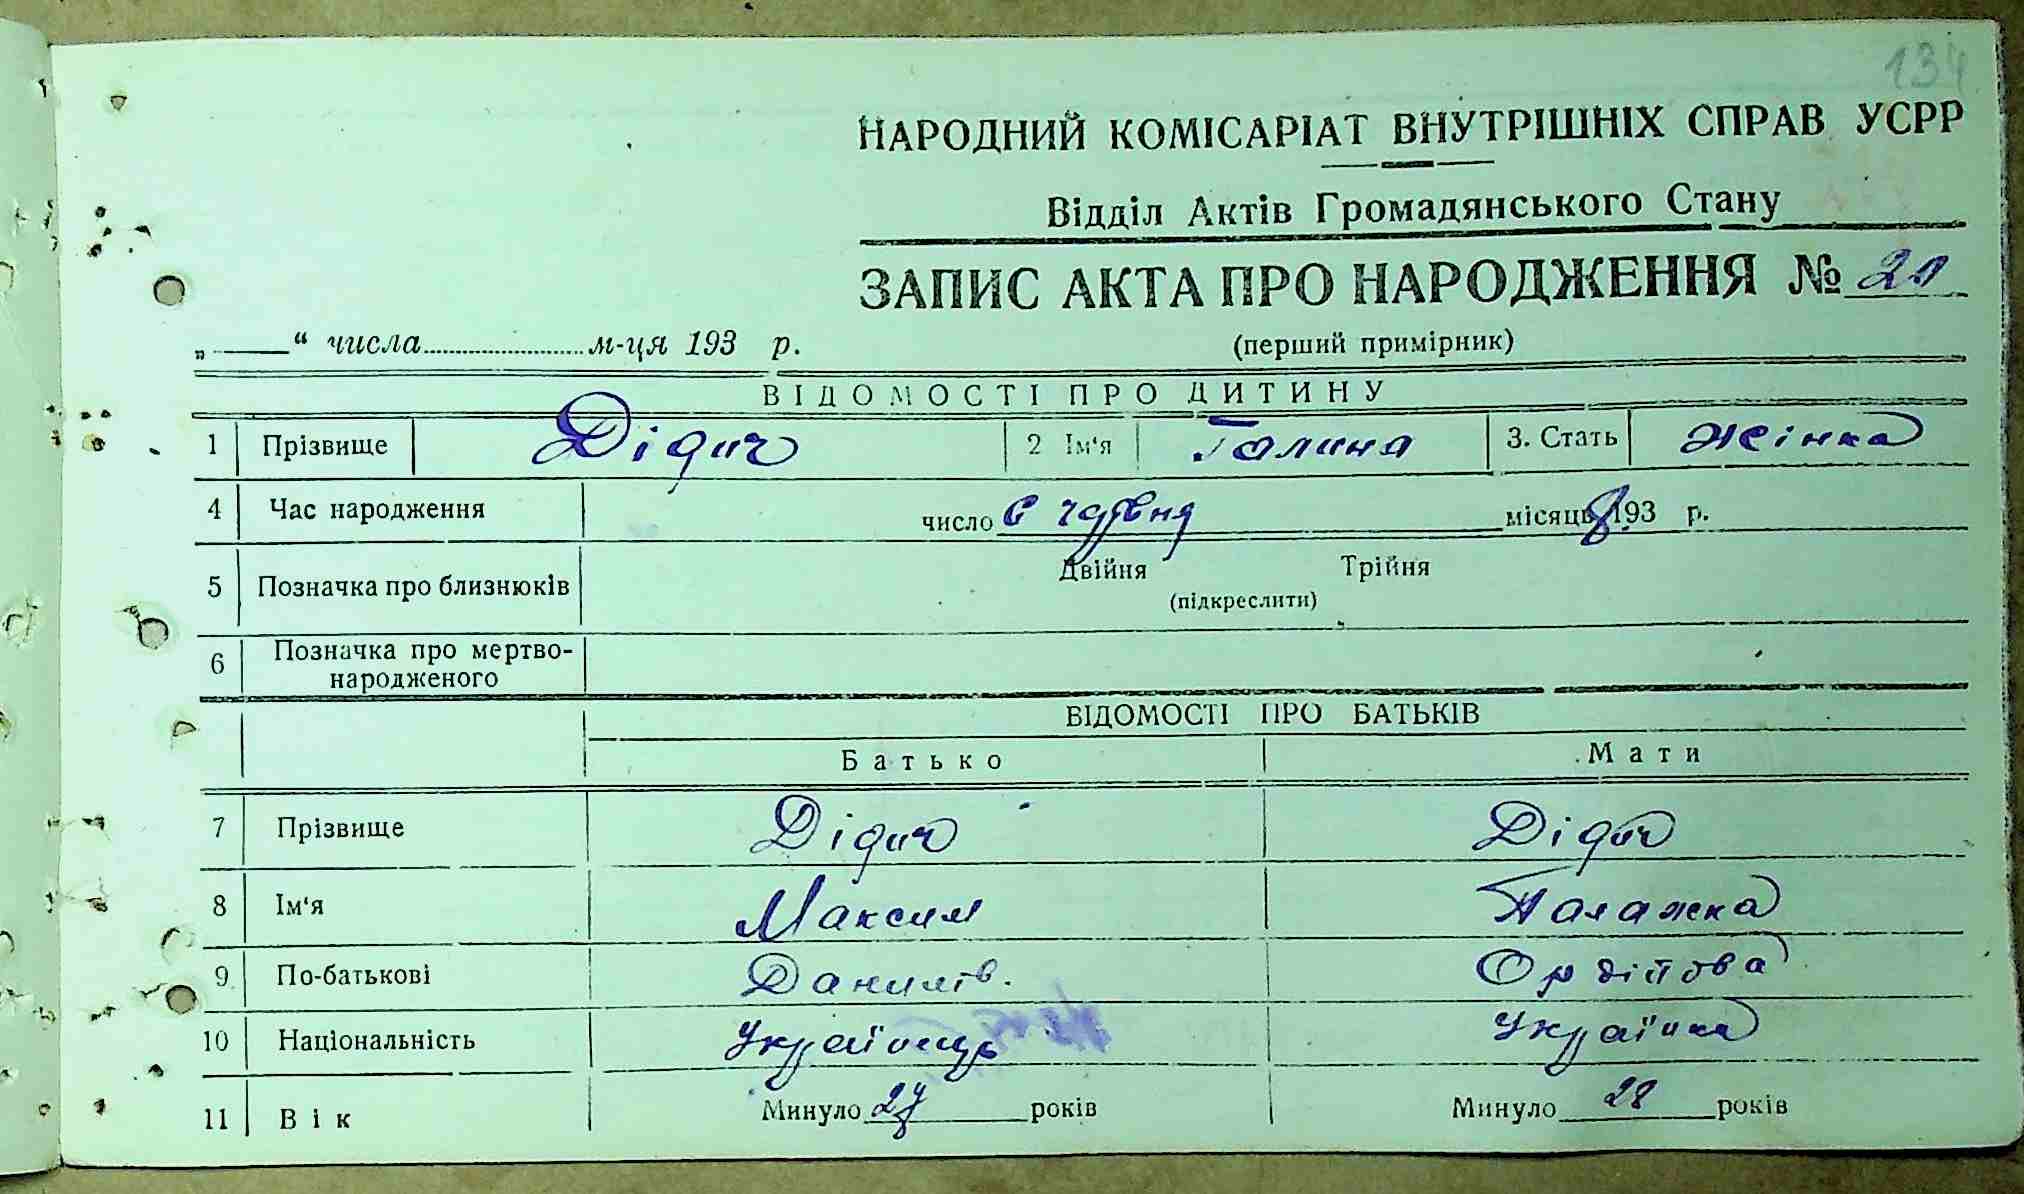 134
НАРОДНИЙ КОМІСАРІАТ ВНУТРІШНІХ СПРАВ УСРР
Відділ Актів Громадянського Стану
ЗАПИС АКТА ПРО НАРОДЖЕННЯ №
„ “ числа м-ця 193 р. (перший примірник)
ВІДОМОСТІ ПРО ДИТИНУ
1 Прізвище Дідич 2 Ім'я Галина 3. Стать Жінка
4 Час народження число 6 червня місяць 193 р.
5 Позначка про близнюків Двійня Трійня
(підкреслити)
6 Позначка про мертво-
народженого
ВІДОМОСТІ ПРО БАТЬКІВ
Батько Мати
7 Прізвище Дідич Дідич
8 Ім'я Максим Палажка
9 По-батькові Данилів.
10 Національність Українець Українка
11 Вік Минуло років Минуло 28 років